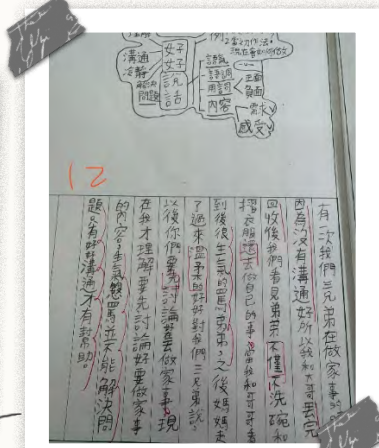 例
好好說話
溝通
冷靜
解決問題
語氣
用詞
內容
正面
負面
需求
感受
12
有一次我們三兄弟在做家事的
因為沒有溝通好所以我和大哥丟完
回收後我們看見弟弟不僅不洗碗和
摺衣服還去做自己的事
到後很生氣的罵弟弟之後媽媽走
了過來溫柔的好好對我們三兄弟說
以後你們要先討論好要做家事現
在我才理解要先討論好要做家事
的內容生氣怒罵並不能解決問
題只有好好溝通才有幫助。